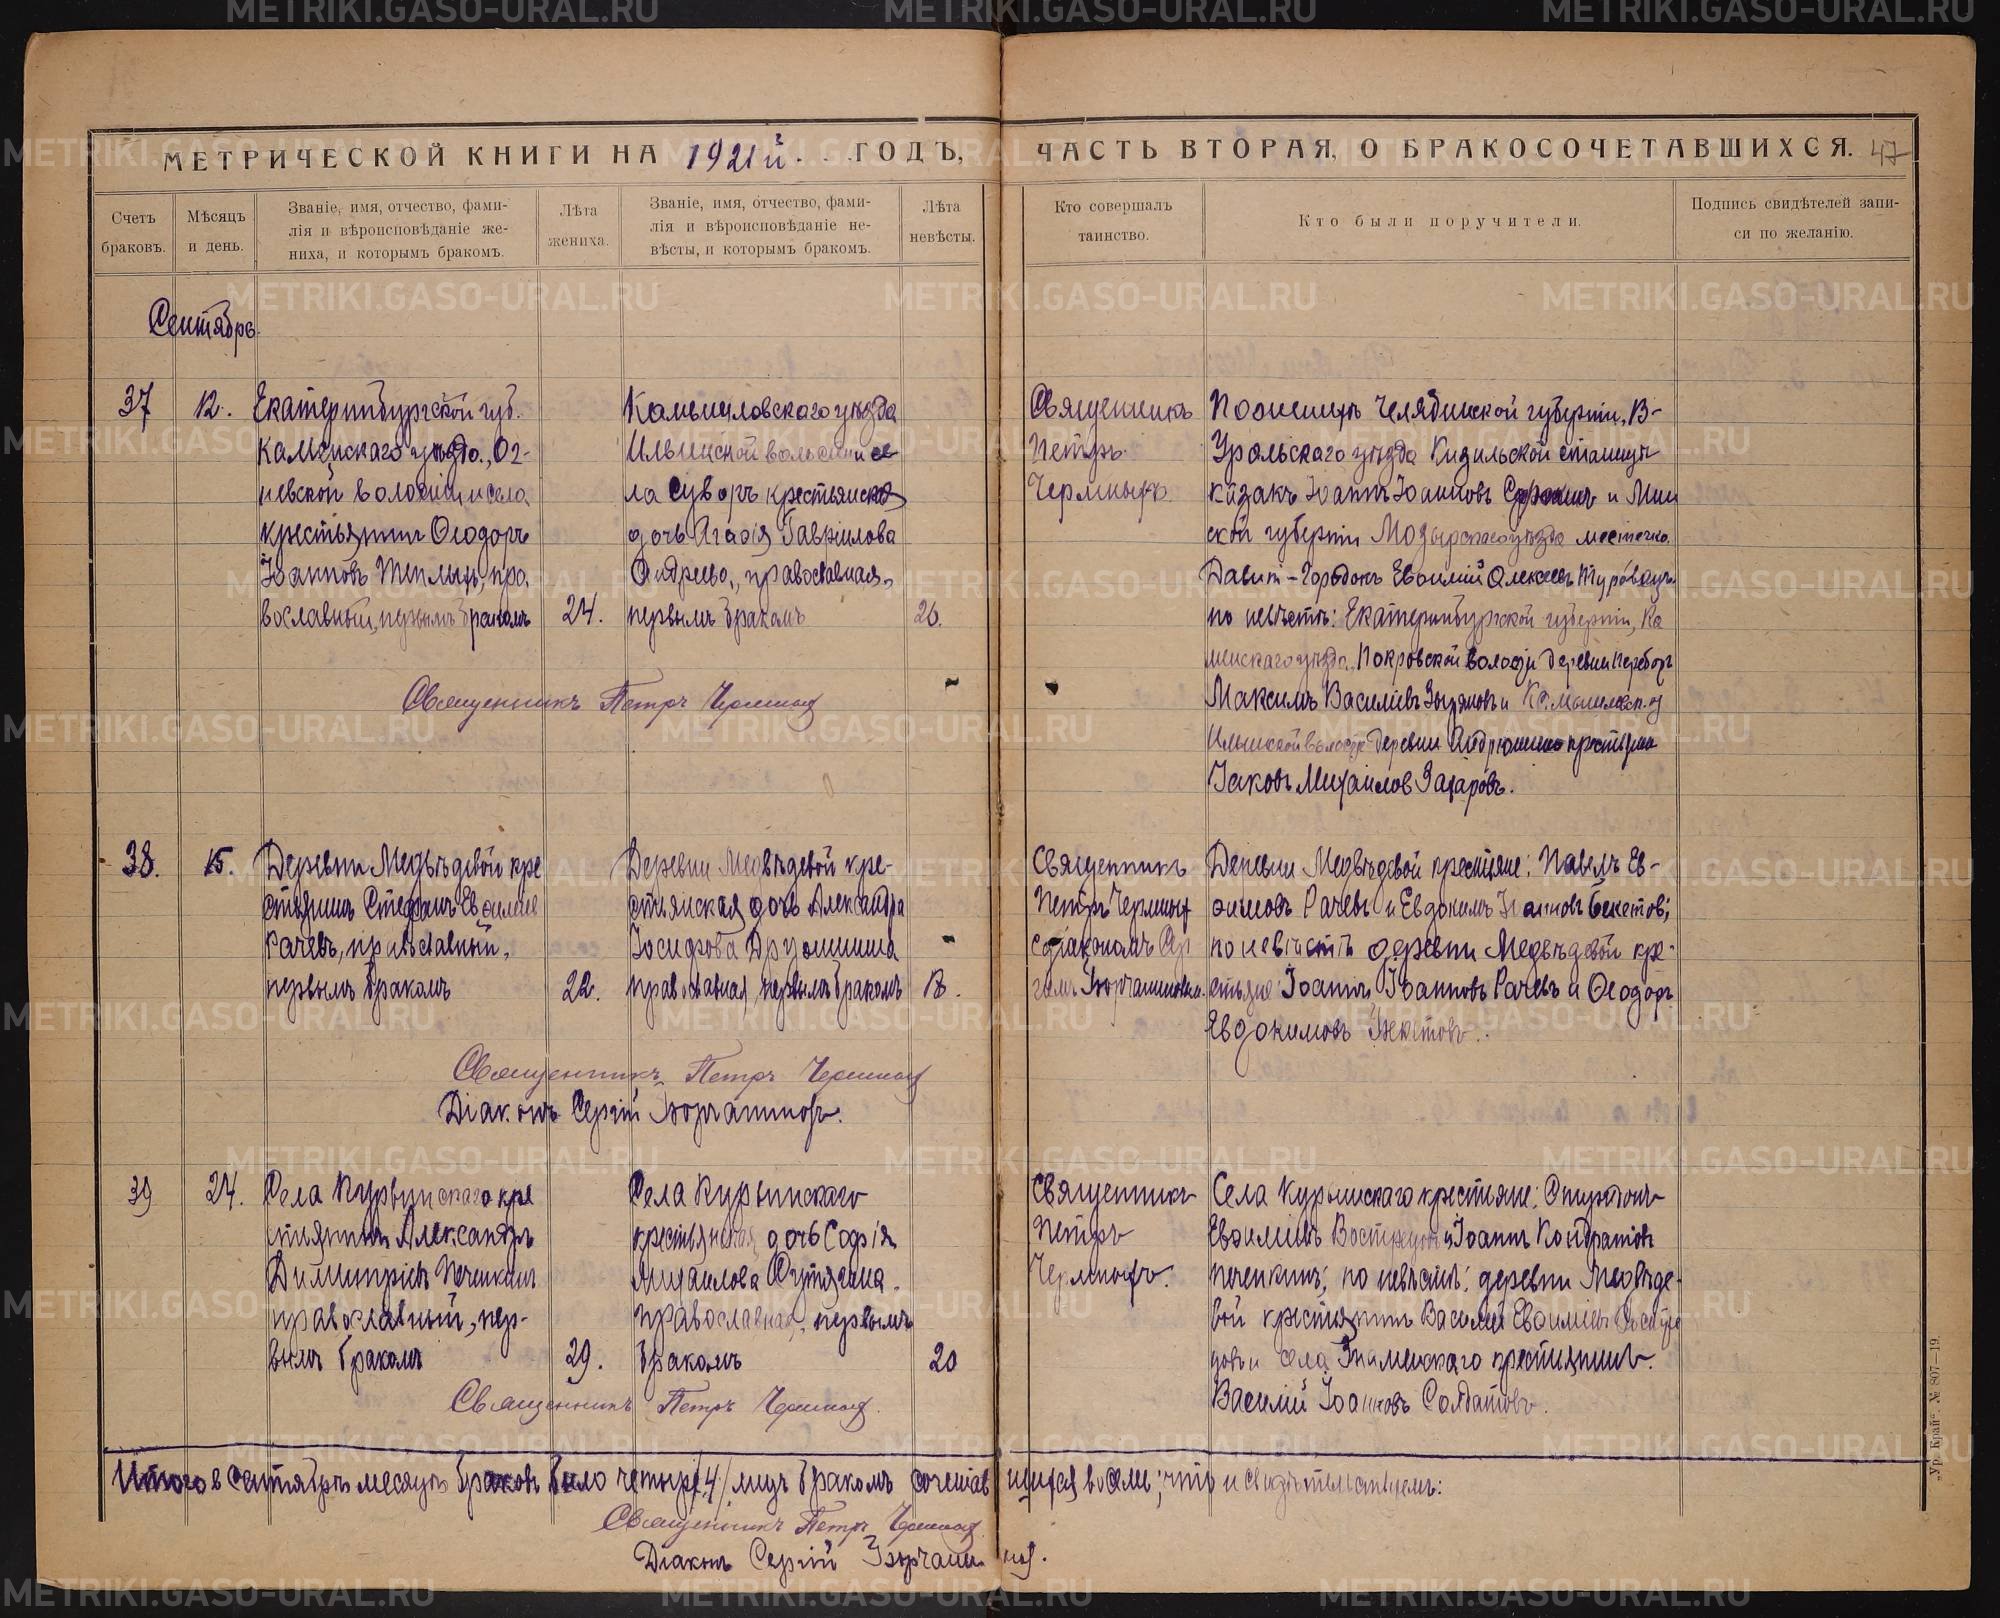 МЕТРИЧЕСКОЙ КНИГИ НА 1921й ГОДЪ, ЧАСТЬ ВТОРАЯ, О БРАКОСОЧЕТАВШИХСЯ. 47
Счетъ
браковъ.
Мѣсяцъ
и день.
Званіе, имя, отчество, фами-
лія и вѣроисповѣданіе же-
ниха, и которымъ бракомъ.
Лѣта
жениха.
Званіе, имя, отчество, фами-
лія и вѣроисповѣданіе не-
вѣсты, и которымъ бракомъ.
Лѣта
невѣсты.
Кто совершалъ
таинство.
Кто были поручители.
Подпись свидѣтелей запи-
си по желанію.
Сентябрь.
37
12.
Екатеринбургской губ.
Каменскаго уѣзда,
невской волости села
крестьянин Ѳеодоръ
Іоанновъ Теплыхъ, пра-
вославный, первымъ бракомъ
24.
Камышловскаго уѣзда
Ильинской волости се
ла Суворъ крестьянская
дочь Агаѳія Гаврилова
православная,
первымъ бракомъ
20.
Священникъ
Петръ
По женихѣ Челябинской губерніи, В-
Уральскаго уѣзда Кизильской станицы
казакъ Іоаннъ Іоанновъ и Мин
ской губерніи Мозырскаго уѣзда местечка
Давит-Городокъ Евѳимій Алексеевъ
по невѣстѣ: Екатеринбургской губерніи, Ка
менскаго уѣзда, Покровской волости деревни
Максимъ Василіевъ Зыряновъ и
Ильинской волости деревни
Іаковъ Михаилов Захаровъ.
Священникъ Петръ
38.
15.
Деревни Медвѣдевой кре
стьянинъ Стефанъ Евѳиміев
Рачевъ, православный,
первымъ бракомъ
22.
Деревни Медвѣдевой кре-
стьянская дочь Александра
Іосифова
православная, первымъ бракомъ
18.
Священникъ
Петръ
Деревни Медвѣдевой крестьяне: Павелъ Ев-
ѳимовъ Рачевъ и Евдокимъ Іоанновъ Бекетовъ;
по невѣстѣ деревни Медвѣдевой кре-
стьяне: Іоаннъ Іоанновъ Рачевъ и Ѳеодоръ
Евдокимовъ
Священникъ Петръ
Діаконъ Сергій
39
24.
Села Курьинскаго кре
стьянинъ Александръ
Димитріевъ Печенкинъ
православный, пер-
вымъ бракомъ
29.
Села Курьинскаго
крестьянская дочь Софія
Михаилова
православная, первымъ
бракомъ
20
Священникъ
Петръ
Села Курьинскаго крестьяне: Спиридонъ
Евѳиміевъ и Іоаннъ Кондратовъ
Печенкинъ; по невѣстѣ: деревни Медвѣде-
вой крестьянинъ Василій Евѳиміевъ
и села Знаменскаго крестьянинъ
Василій Іоанновъ Солдатовъ.
Священникъ Петръ
Итого в Сентябрѣ месяцѣ браковъ было четыре /4/ лицъ бракомъ сочетав шихся восемь; что и свидѣтельствуемъ:
Священникъ Петръ
Діаконъ Сергій
„Ур. Край“. № 807—19.
METRIKI.GASO-URAL.RU